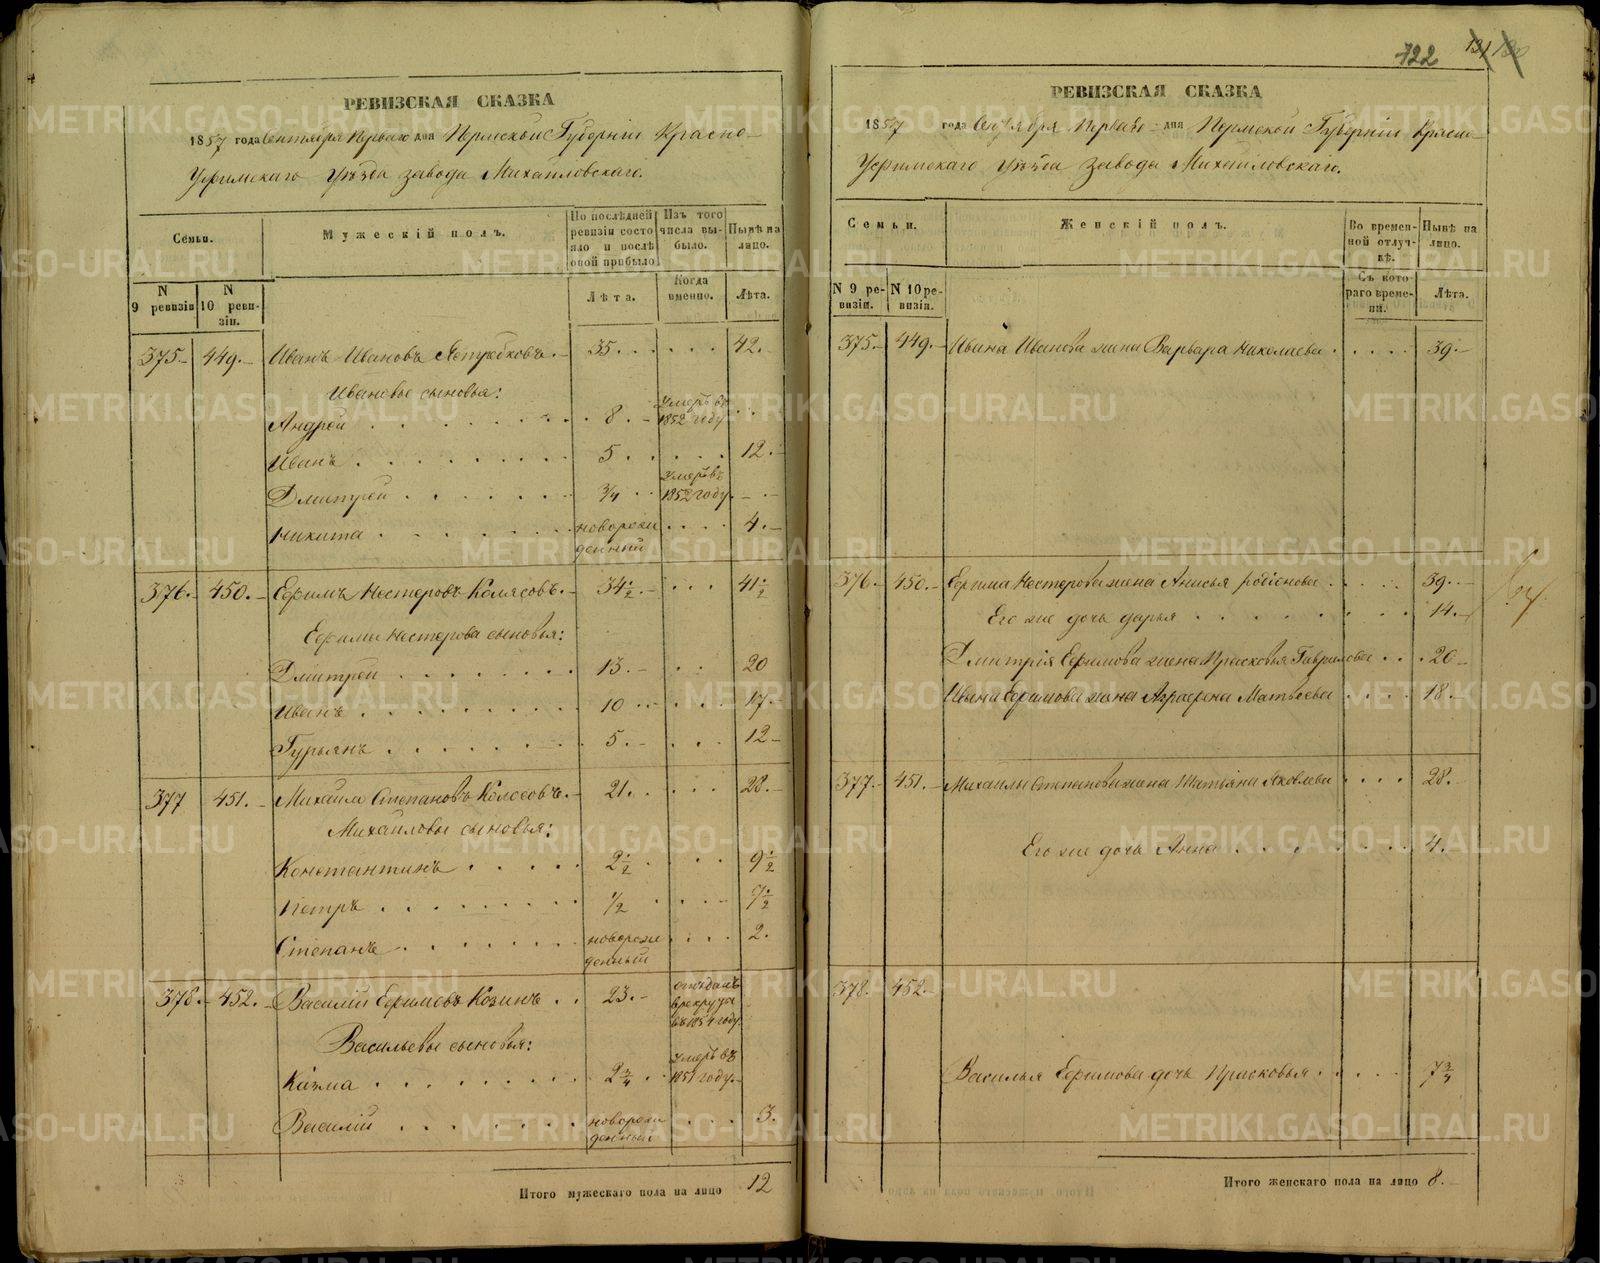 РЕВИЗСКАЯ СКАЗКА
1857 года Сентября Перваго дня Пермской Губерніи Красно-
Уфимскаго Уѣзда завода Михайловскаго.
Семьи.
Мужескій полъ.
По послѣдней ревизіи состояло и послѣ оной прибыло
Изъ того числа выбыло.
Нынѣ на лицо.
N 9 ревизіи
N 10 ревизіи.
Лѣта.
Когда именно.
Лѣта.
375.- 449.- Иванъ Ивановъ 35. 42.-
Ивановы сыновья:
Андрей 8. Умеръ въ 1852 году
Иванъ 5 12.-
Дмитрей 3/4 Умеръ въ 1852 году
Никита новорожденный 4.-
376.- 450.- Ефимъ Нестеровъ Колясовъ.- 34 1/2 41 1/2
Ефима Нестерова сыновья:
Дмитрей 13.- 20
Иванъ 10 17.-
Гурьянъ 5.- 12-
377 451.- Михаила Степановъ Колосовъ.- 21. 28.-
Михайловы сыновья:
Константинъ 2 1/2 9 1/2
Петръ 1/2 7 1/2
Степанъ новорожденный 2.
378.- 452.- Василій Ефимовъ Козинъ 23.- отданъ в рекруты въ 1854 году.
Васильевы сыновья:
Козма Умеръ въ 1851 году.
Василій новорожденный 3.
Итого мужескаго пола на лицо 12
122 131
РЕВИЗСКАЯ СКАЗКА
1857 года Сентября Перваго дня Пермской Губерніи Красно-
Уфимскаго Уѣзда завода Михайловскаго.
Семьи.
Женскій полъ.
Во временной отлучкѣ.
Нынѣ на лицо.
N 9 ревизіи.
N 10 ревизіи.
Съ котораго времени.
Лѣта.
375.- 449.- Ивана Иванова жена Варвара Николаева 39.-
376.- 450.- Ефима Нестерова жена Анисья Родіонова 39.-
Его же дочь дарья 14.-
Дмитрія Ефимова жена Прасковья Гаврилова 20-
Ивана Ефимова жена Аграфена Матвѣева 18.-
377.- 451.- Михаилы Степанова жена Татьяна Яковлева 28.-
Его же дочь Анна 4.
378. 452.-
Василья Ефимова дочь Прасковья 7 3/4
Итого женскаго пола на лицо 8.-
METRIKI.GASO-URAL.RU